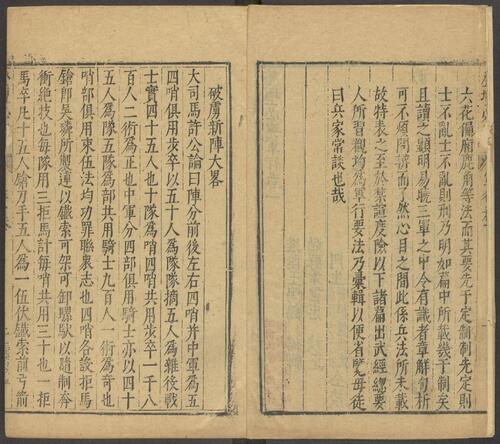 六花偏廂鹿角等法而其要先于定制制先定則
士不亂士不亂則刑乃明如編中所載幾于制矣
且讀之顯明易曉三軍之中令有識者章解句析
可不煩講而了然心目之間此係兵法所未載
故特表之至於禁諠度險以下諸篇出武經總要
人所習觀均為軍行要法乃彙輯以便省覽毋徒
曰兵家常談也哉
破虜新陣大畧
大司馬許公論曰陣分前後左右四哨并中軍為五
四哨俱用步卒以五十人為隊隊摘五人為雜役戰
士實四十五人也十隊為哨四哨共用步卒一千八
百人二術為正也中軍分四部俱用騎士亦以四十
五人為隊五隊為部共用騎士九百人一術為奇也
哨部俱用束伍法均功罪聯衆志也四哨各設拒馬
鎗即吳璘所製連以鐵索可架可卸騾馱以隨制奔
衝絶技也每隊用三拒馬計每哨共用三十也一拒
馬卒凡十五人鎗刀手五人為一伍伏鐵索前弓箭